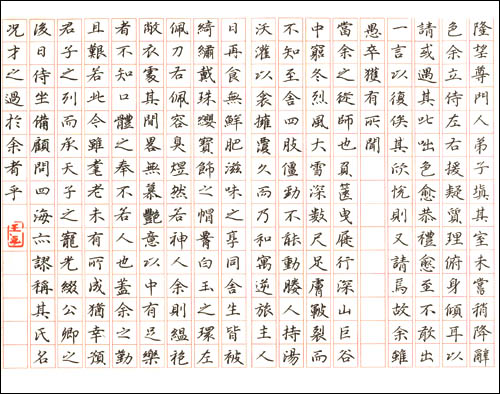 隆望尊門人弟子填其室未嘗稍降辭
色余立侍左右援疑質理俯身傾耳以
請或遇其叱咄色愈恭禮愈至不敢出
一言以復俟其欣悅則又請焉故余雖
愚卒獲有所聞
當余之從師也負篋曳屣行深山巨谷
中窮冬烈風大雪深數尺足膚皸裂而
不知至舍四肢僵勁不能動媵人持湯
沃灌以衾擁覆久而乃和寓逆旅主人
日再食無鮮肥滋味之享同舍生皆被
綺繡戴珠纓寶飾之帽腰白玉之環左
佩刀右佩容臭煜然若神人余則縕袍
敝衣處其間畧無慕艷意以中有足樂
者不知口體之奉不若人也蓋余之勤
且艱若此今雖耄老未有所成猶幸預
君子之列而承天子之寵光綴公卿之
後日侍坐備顧問四海亦謬稱其氏名
況才之過於余者乎